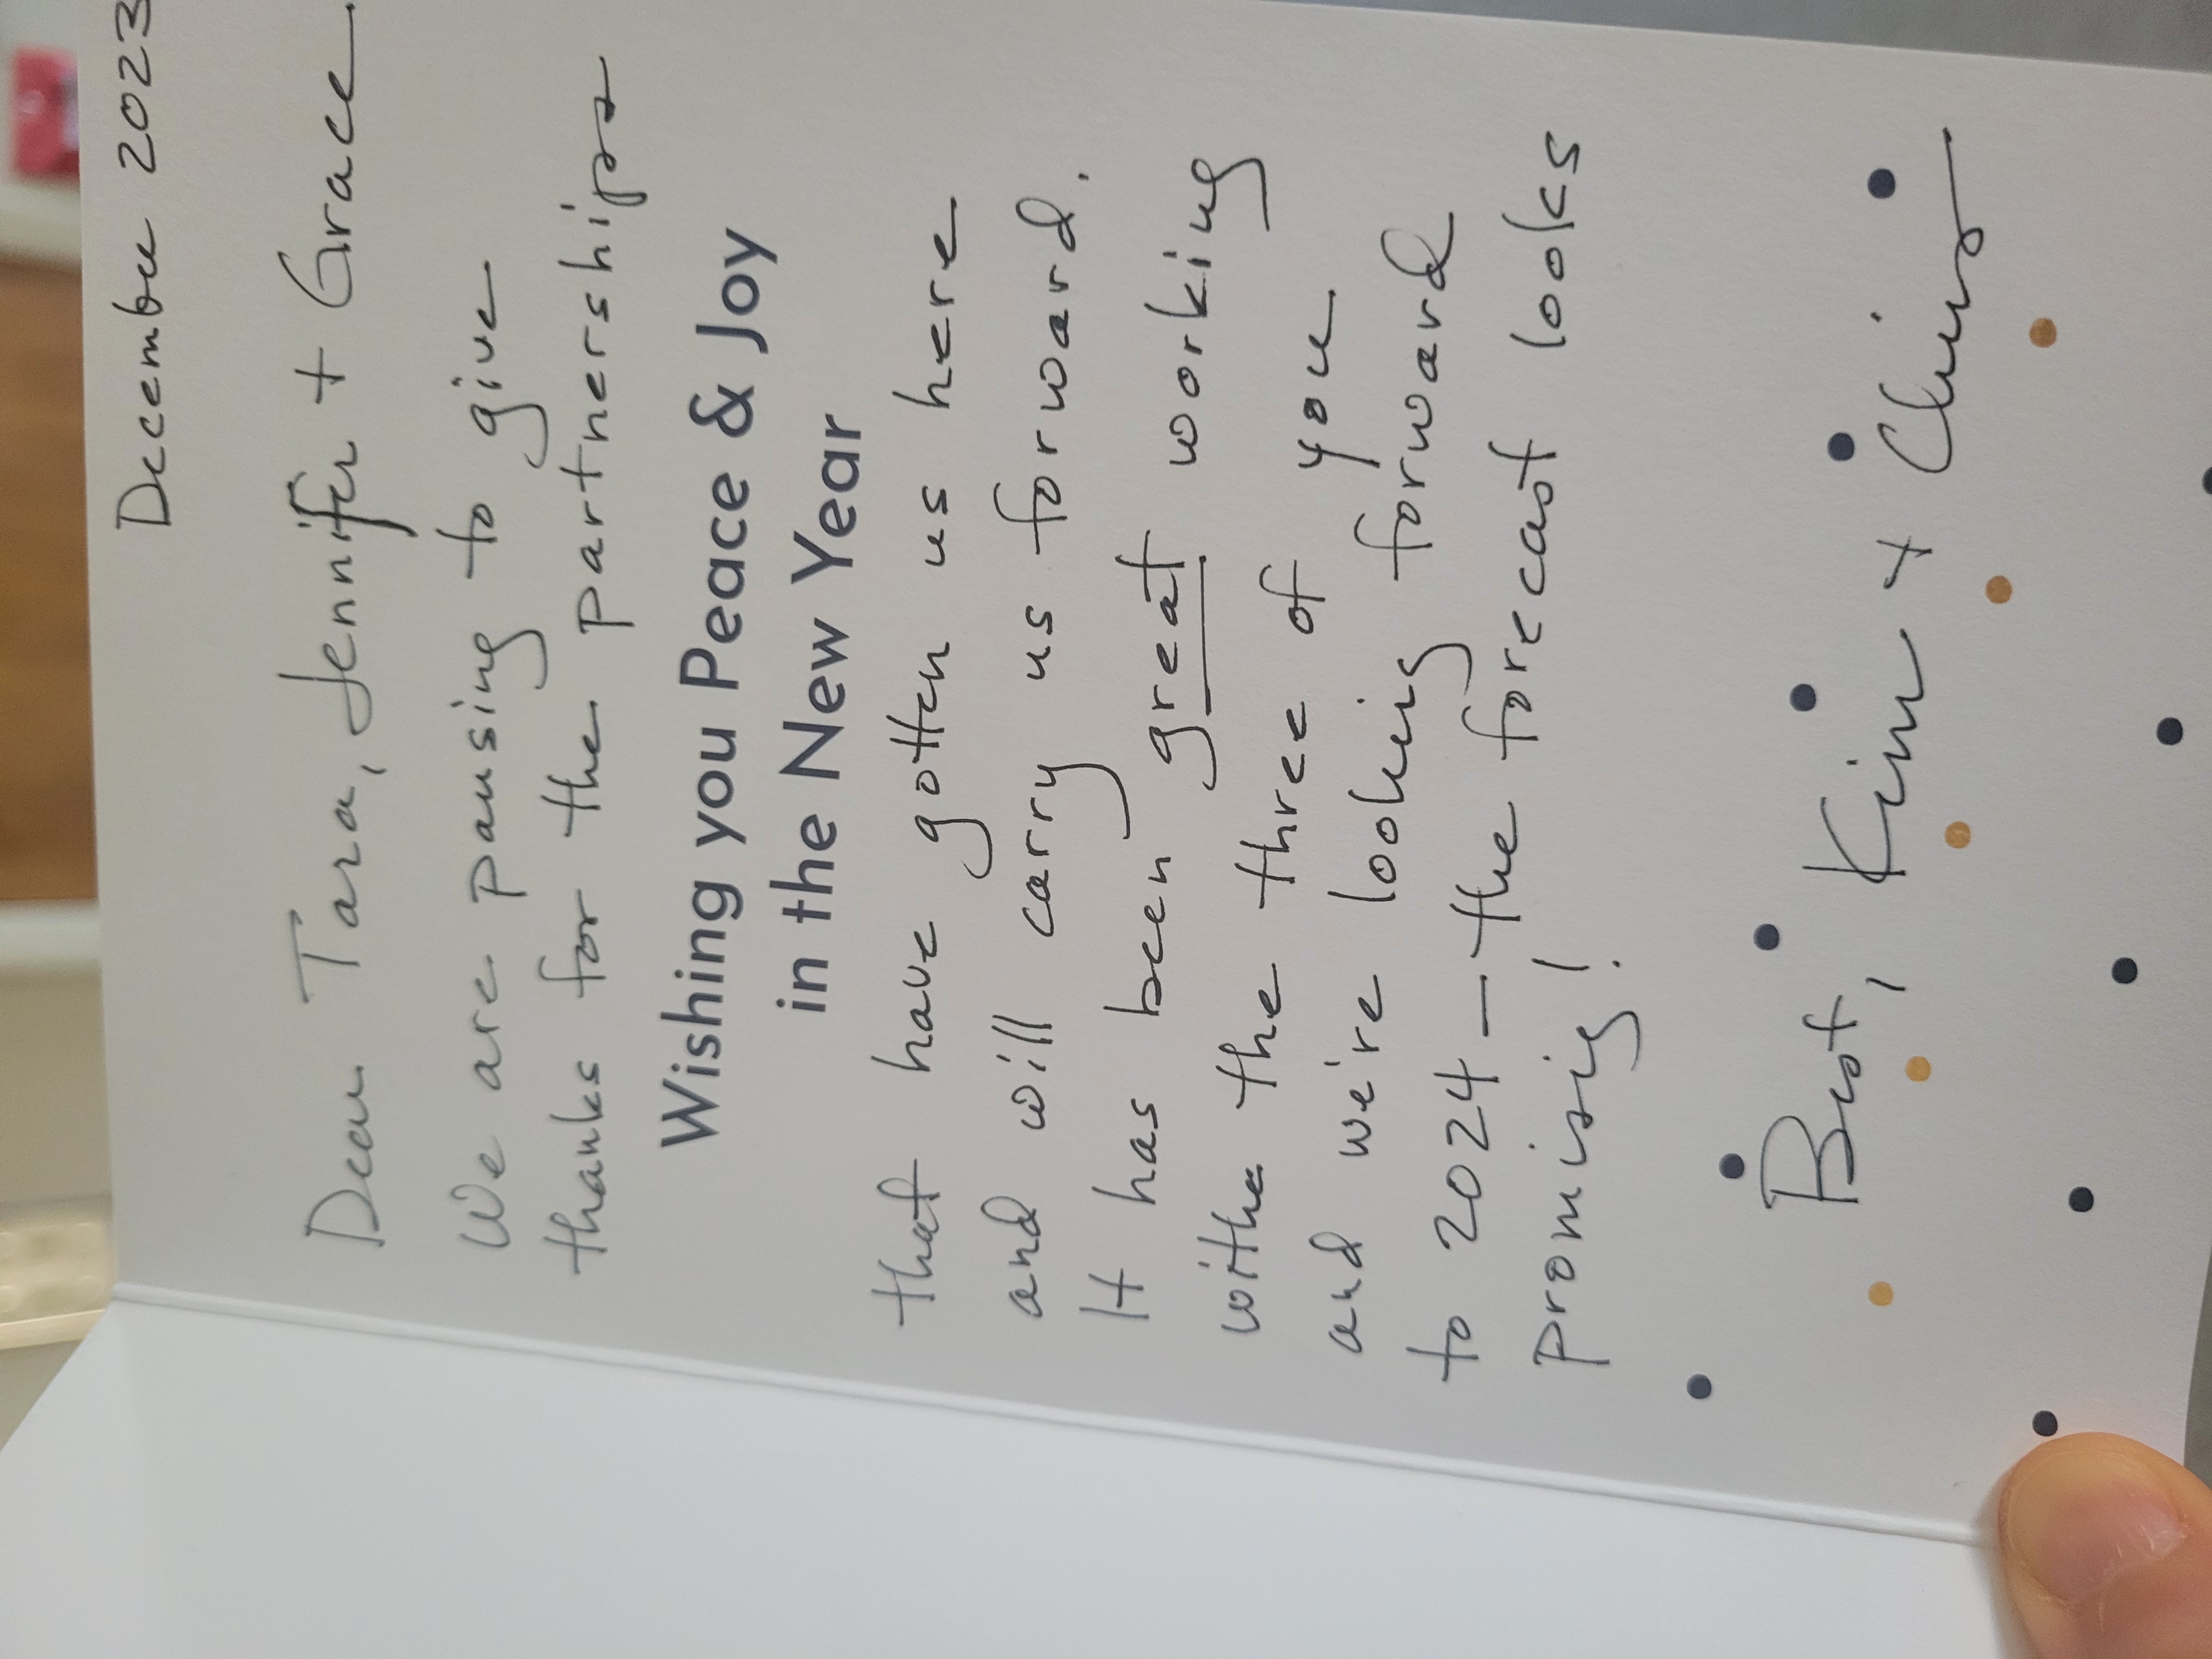 December 2023
Dear Tara, Jennifer + Grace
We are pausing to give
thanks for the partnerships
Wishing you Peace & Joy
in the New Year
that have gotten us here
and will carry us forward.
It has been great working
with the three of you
and we're looking forward
to 2024 – the forecast looks
promising!
Best, Kim + Chris